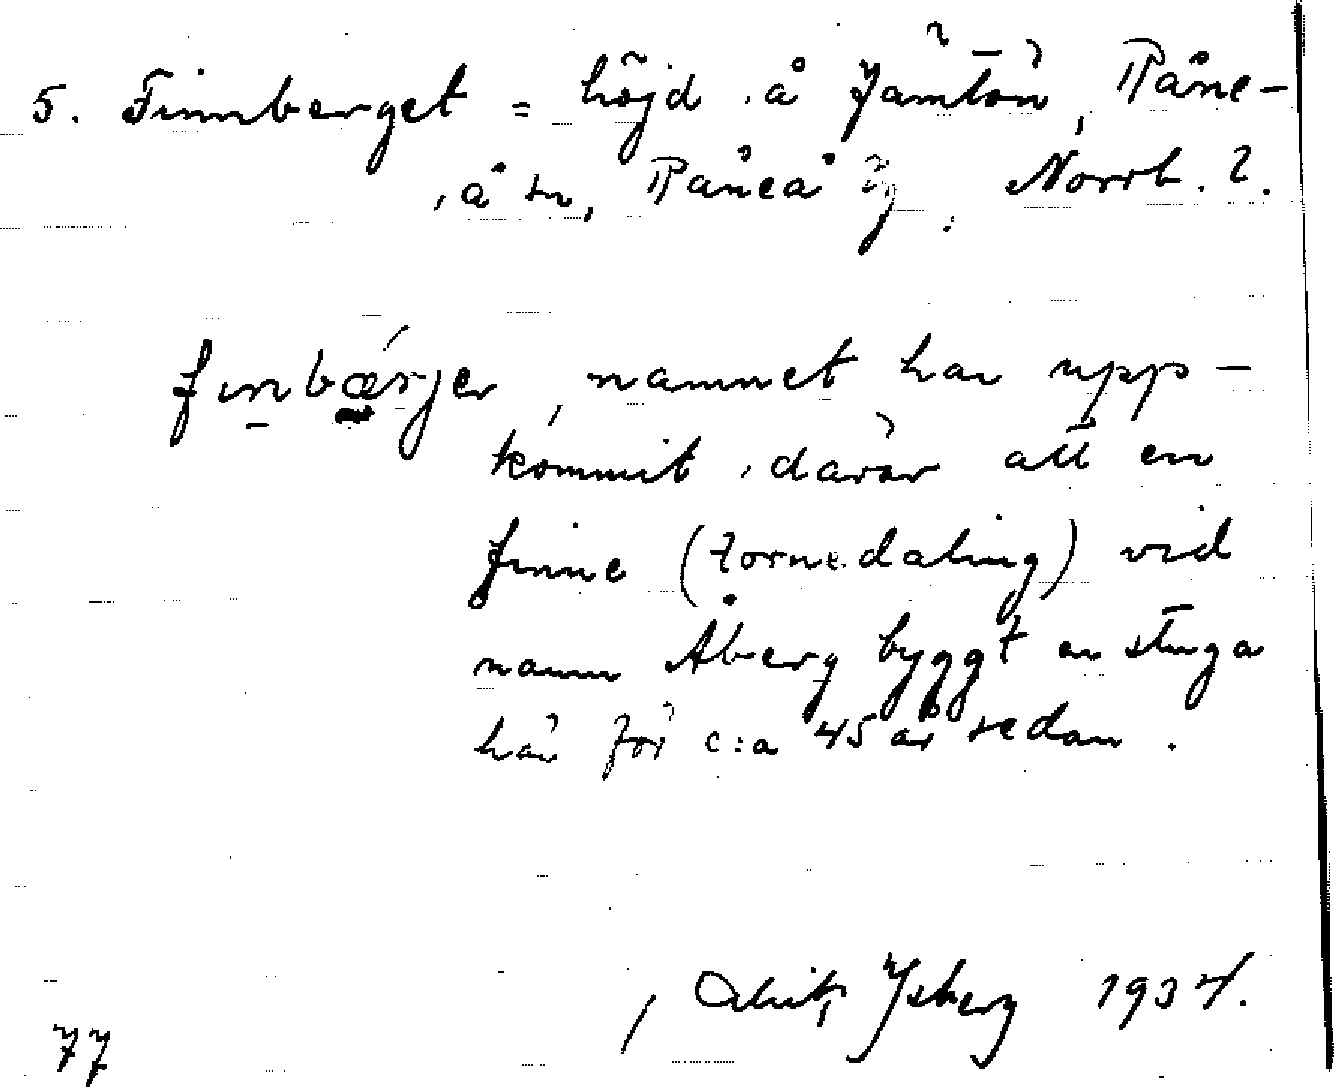 5. Finnberget = höjd å Jämtön, Råne-
å sn, Råneå tg, Norrb. l.
finbærjer, namnet har upp-
kommit därav att en
finne (tornedaling) vid
namn Åberg byggt en stuga
här för c:a 45 år sedan.
Ysberg 1934.
77